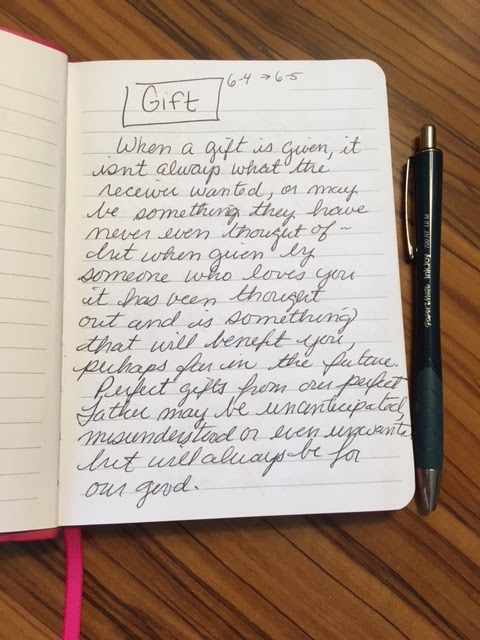 6-4 → 6-5
Gift
When a gift is given, it
isn't always what the
receiver wanted, or may
be something they have
never even thought of ~
but when given by
someone who loves you
it has been thought
out and is something
that will benefit you,
perhaps far in the future.
Perfect gifts from our perfect
Father may be unanticipated,
misunderstood or even unwante
but will always be for
our good.
PAPER MATE INKJOY